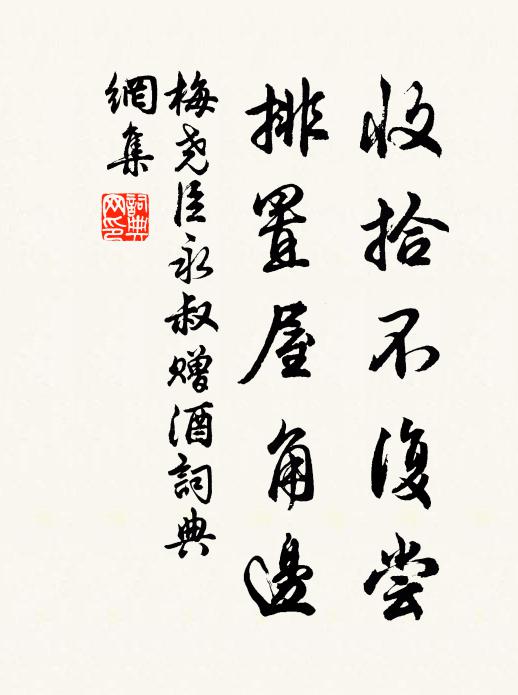 收拾不復尝
排置屋角邊
梅尧臣永叔贈酒詞典
網集
詞典
网印